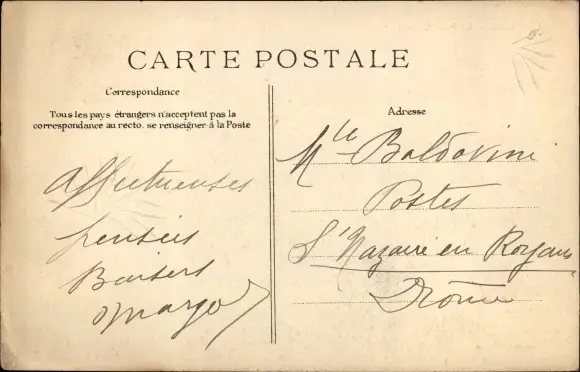 CARTE POSTALE
Correspondance
Tous les pays étrangers n'acceptent pas la
correspondance au recto. se renseigner à la Poste
Affectueuses
pensées
Baisers
Margot
Adresse
Mlle Baldovini
Postes
St Nazaire en Royans
Drôme